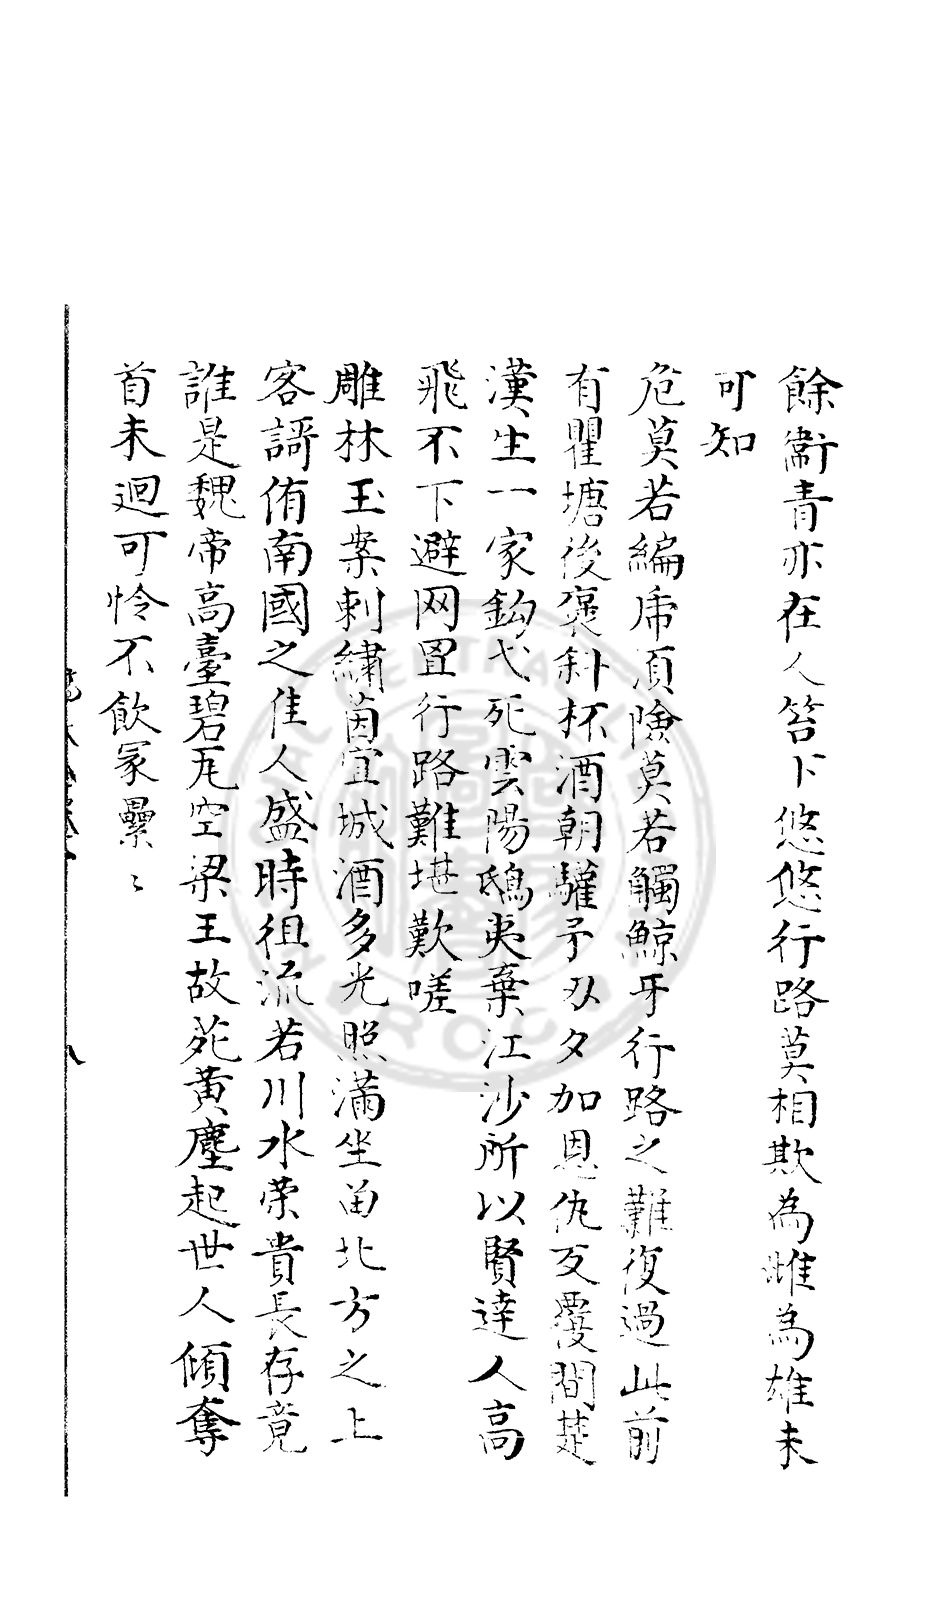 餘衞青亦在人笞下悠悠行路莫相欺為雌為雄未
可知
危莫若編虎須險莫若觸鯨牙行路之難復過此前
有瞿塘後褒斜杯酒朝驩予刄夕加恩仇反覆間楚
漢生一家鈎弋死雲陽鴟夷棄江沙所以賢達人高
飛不下避网罝行路難堪歎嗟
雕牀玉案刺繡茵宜城酒多光照滿坐畱北方之上
客謌侑南國之佳人盛時徂流若川水荣貴長存竟
誰是魏帝高臺碧瓦空梁王故苑黄塵起世人傾奪
首未迴可怜不飲冢纍〻
八